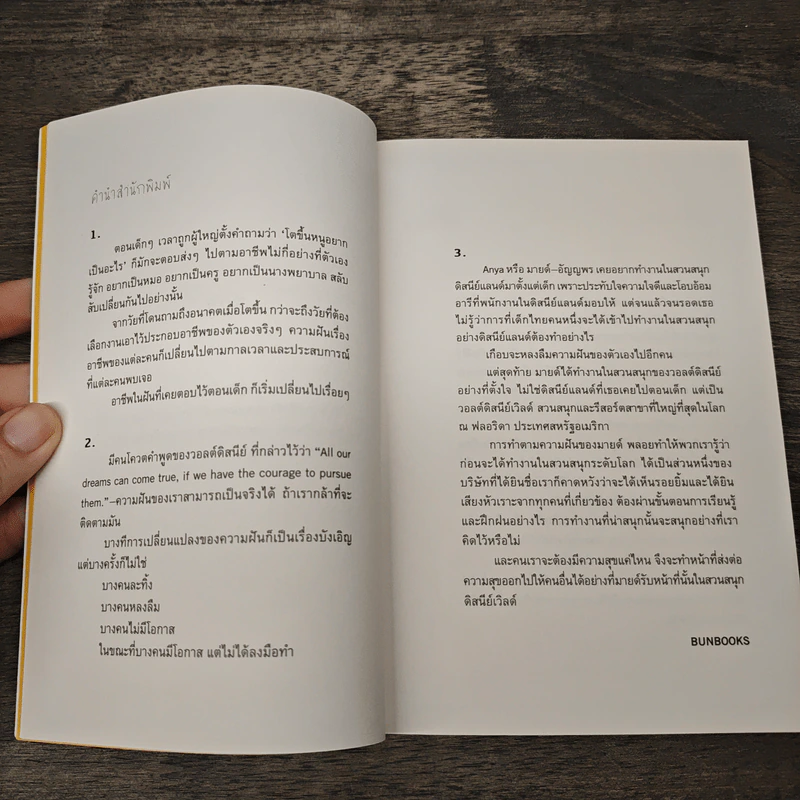 คำนำสำนักพิมพ์
1.
ตอนเด็กๆ เวลาถูกผู้ใหญ่ตั้งคำถามว่า 'โตขึ้นหนูอยาก
เป็นอะไร' ก็มักจะตอบส่งๆ ไปตามอาชีพไม่กี่อย่างที่ตัวเอง
รู้จัก อยากเป็นหมอ อยากเป็นครู อยากเป็นนางพยาบาล สลับ
สับเปลี่ยนกันไปอย่างนั้น
จากวัยที่โดนถามถึงอนาคตเมื่อโตขึ้น กว่าจะถึงวัยที่ต้อง
เลือกงานเอาไว้ประกอบอาชีพของตัวเองจริงๆ ความฝันเรื่อง
อาชีพของแต่ละคนก็เปลี่ยนไปตามกาลเวลาและประสบการณ์
ที่แต่ละคนพบเจอ
อาชีพในฝันที่เคยตอบไว้ตอนเด็ก ก็เริ่มเปลี่ยนไปเรื่อยๆ
2.
มีคนโควตคำพูดของวอลต์ดิสนีย์ ที่กล่าวไว้ว่า "All our
dreams can come true, if we have the courage to pursue
them."–ความฝันของเราสามารถเป็นจริงได้ ถ้าเรากล้าที่จะ
ติดตามมัน
บางทีการเปลี่ยนแปลงของความฝันก็เป็นเรื่องบังเอิญ
แต่บางครั้งก็ไม่ใช่
บางคนละทิ้ง
บางคนหลงลืม
บางคนไม่มีโอกาส
ในขณะที่บางคนมีโอกาส แต่ไม่ได้ลงมือทำ
3.
Anya หรือ มายด์–อัญญพร เคยอยากทำงานในสวนสนุก
ดิสนีย์แลนด์มาตั้งแต่เด็ก เพราะประทับใจความใจดีและโอบอ้อม
อารีที่พนักงานในดิสนีย์แลนด์มอบให้ แต่จนแล้วจนรอดเธอ
ไม่รู้ว่าการที่เด็กไทยคนหนึ่งจะได้เข้าไปทำงานในสวนสนุก
อย่างดิสนีย์แลนด์ต้องทำอย่างไร
เกือบจะหลงลืมความฝันของตัวเองไปอีกคน
แต่สุดท้าย มายด์ได้ทำงานในสวนสนุกของวอลต์ดิสนีย์
อย่างที่ตั้งใจ ไม่ใช่ดิสนีย์แลนด์ที่เธอเคยไปตอนเด็ก แต่เป็น
วอลต์ดิสนีย์เวิลด์ สวนสนุกและรีสอร์ตสาขาที่ใหญ่ที่สุดในโลก
ณ ฟลอริดา ประเทศสหรัฐอเมริกา
การทำตามความฝันของมายด์ พลอยทำให้พวกเรารู้ว่า
ก่อนจะได้ทำงานในสวนสนุกระดับโลก ได้เป็นส่วนหนึ่งของ
บริษัทที่ได้ยินชื่อเราก็คาดหวังว่าจะได้เห็นรอยยิ้มและได้ยิน
เสียงหัวเราะจากทุกคนที่เกี่ยวข้อง ต้องผ่านขั้นตอนการเรียนรู้
และฝึกฝนอย่างไร การทำงานที่น่าสนุกนั้นจะสนุกอย่างที่เรา
คิดไว้หรือไม่
และคนเราจะต้องมีความสุขแค่ไหน จึงจะทำหน้าที่ส่งต่อ
ความสุขออกไปให้คนอื่นได้อย่างที่มายด์รับหน้าที่นั้นในสวนสนุก
ดิสนีย์เวิลด์
BUNBOOKS